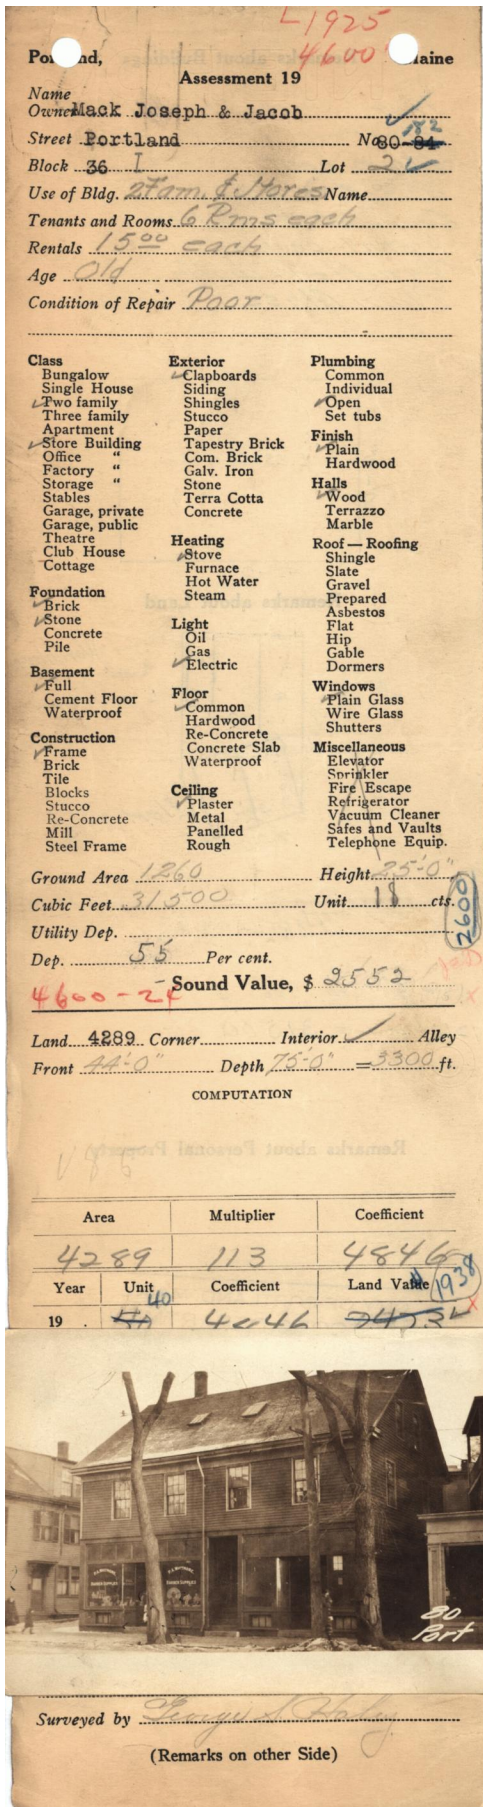 1925
4600
Portland, Maine
Assessment 19
Name
Owner Mack Joseph & Jacob
182
Street Portland No. 80-84
Block 36 I Lot 2
Use of Bldg. 2 Fam. & Stores Name
Tenants and Rooms 6 Rms each
Rentals 15 00 each
Age Old
Condition of Repair Poor
Class
Bungalow
Single House
Two family
Three family
Apartment
Store Building
Office "
Factory "
Storage "
Stables
Garage, private
Garage, public
Theatre
Club House
Cottage
Foundation
Brick
Stone
Concrete
Pile
Basement
Full
Cement Floor
Waterproof
Construction
Frame
Brick
Tile
Blocks
Stucco
Re-Concrete
Mill
Steel Frame
Exterior
Clapboards
Siding
Shingles
Stucco
Paper
Tapestry Brick
Com. Brick
Galv. Iron
Stone
Terra Cotta
Concrete
Heating
Stove
Furnace
Hot Water
Steam
Light
Oil
Gas
Electric
Floor
Common
Hardwood
Re-Concrete
Concrete Slab
Waterproof
Ceiling
Plaster
Metal
Panelled
Rough
Plumbing
Common
Individual
Open
Set tubs
Finish
Plain
Hardwood
Halls
Wood
Terrazzo
Marble
Roof — Roofing
Shingle
Slate
Gravel
Prepared
Asbestos
Flat
Hip
Gable
Dormers
Windows
Plain Glass
Wire Glass
Shutters
Miscellaneous
Elevator
Sprinkler
Fire Escape
Refrigerator
Vacuum Cleaner
Safes and Vaults
Telephone Equip.
Ground Area 1260 Height 25'-0"
Cubic Feet 31500 Unit 18 cts.
2600
Utility Dep.
Dep. 55 Per cent.
Sound Value, $ 2552
4600-24
Land 4289 Corner Interior Alley
Front 44'-0" Depth 75'-0" = 3300 ft.
COMPUTATION
Area Multiplier Coefficient
4289 113 4846
Year Unit Coefficient Land Value 1938
40
19 . 4846
80
Port
Surveyed by George S.
(Remarks on other Side)